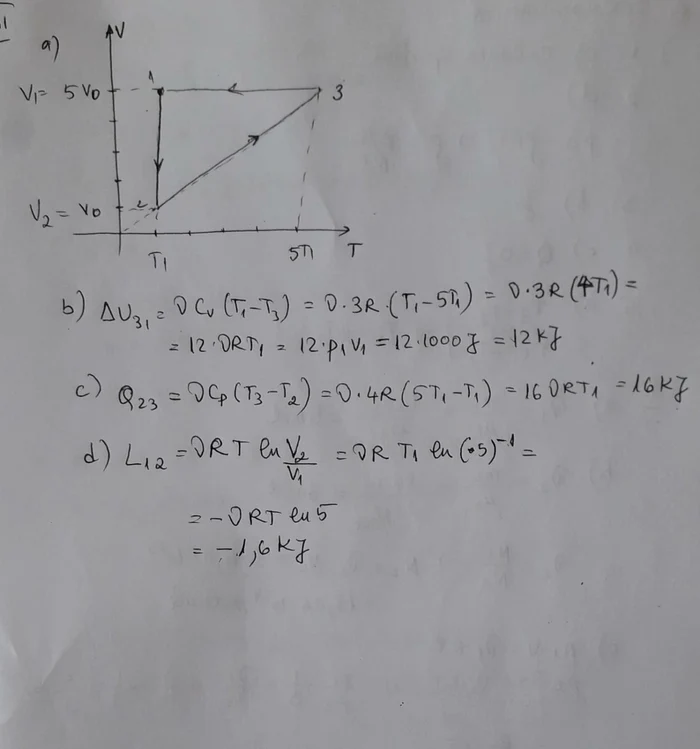 a)
V
V₁= 5V₀
1
3
V₂ = V₀
2
T₁
5T₁
T
b) ΔU₃₁ = νCᵥ(T₁-T₃) = ν·3R·(T₁-5T₁) = ν·3R(4T₁) =
= 12·νRT₁ = 12·p₁V₁ = 12·1000J = 12KJ
c) Q₂₃ = νCp(T₃-T₂) = ν·4R(5T₁-T₁) = 16νRT₁ = 16KJ
d) L₁₂ = νRT ln V₂/V₁ = νRT₁ ln(5)⁻¹ =
= -νRT ln5
= -1,6KJ